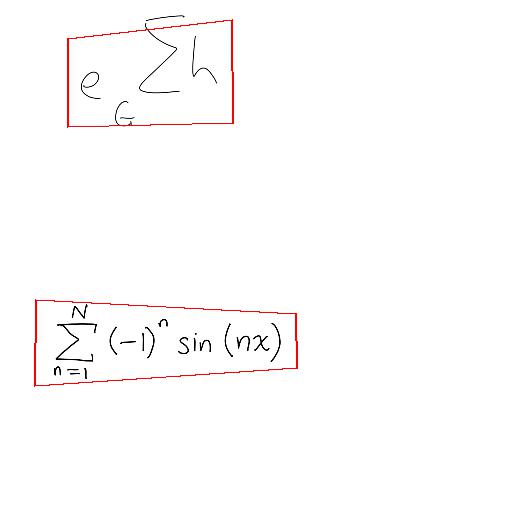 e_G Σ h
\sum_{n=1}^{N} (-1)^n sin (nx)